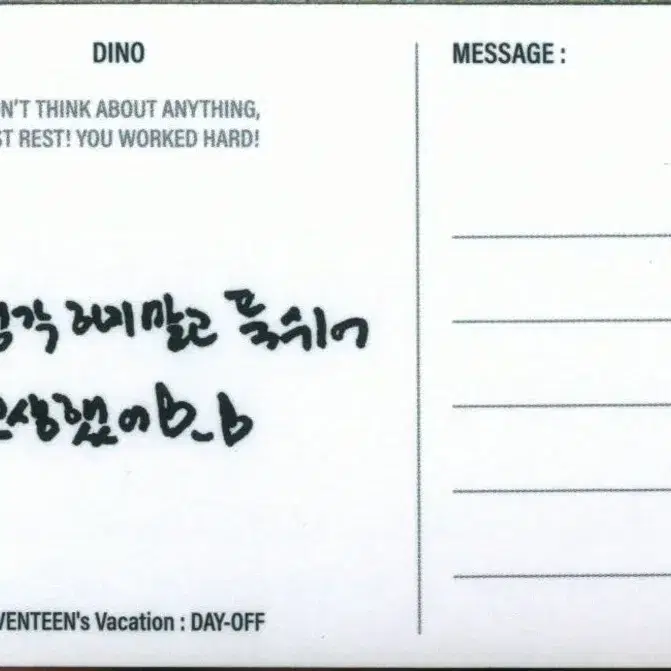 DINO
N'T THINK ABOUT ANYTHING,
ST REST! YOU WORKED HARD!
각 하지말고 푹쉬어
생했어 b_b
VENTEEN's Vacation : DAY-OFF
MESSAGE :